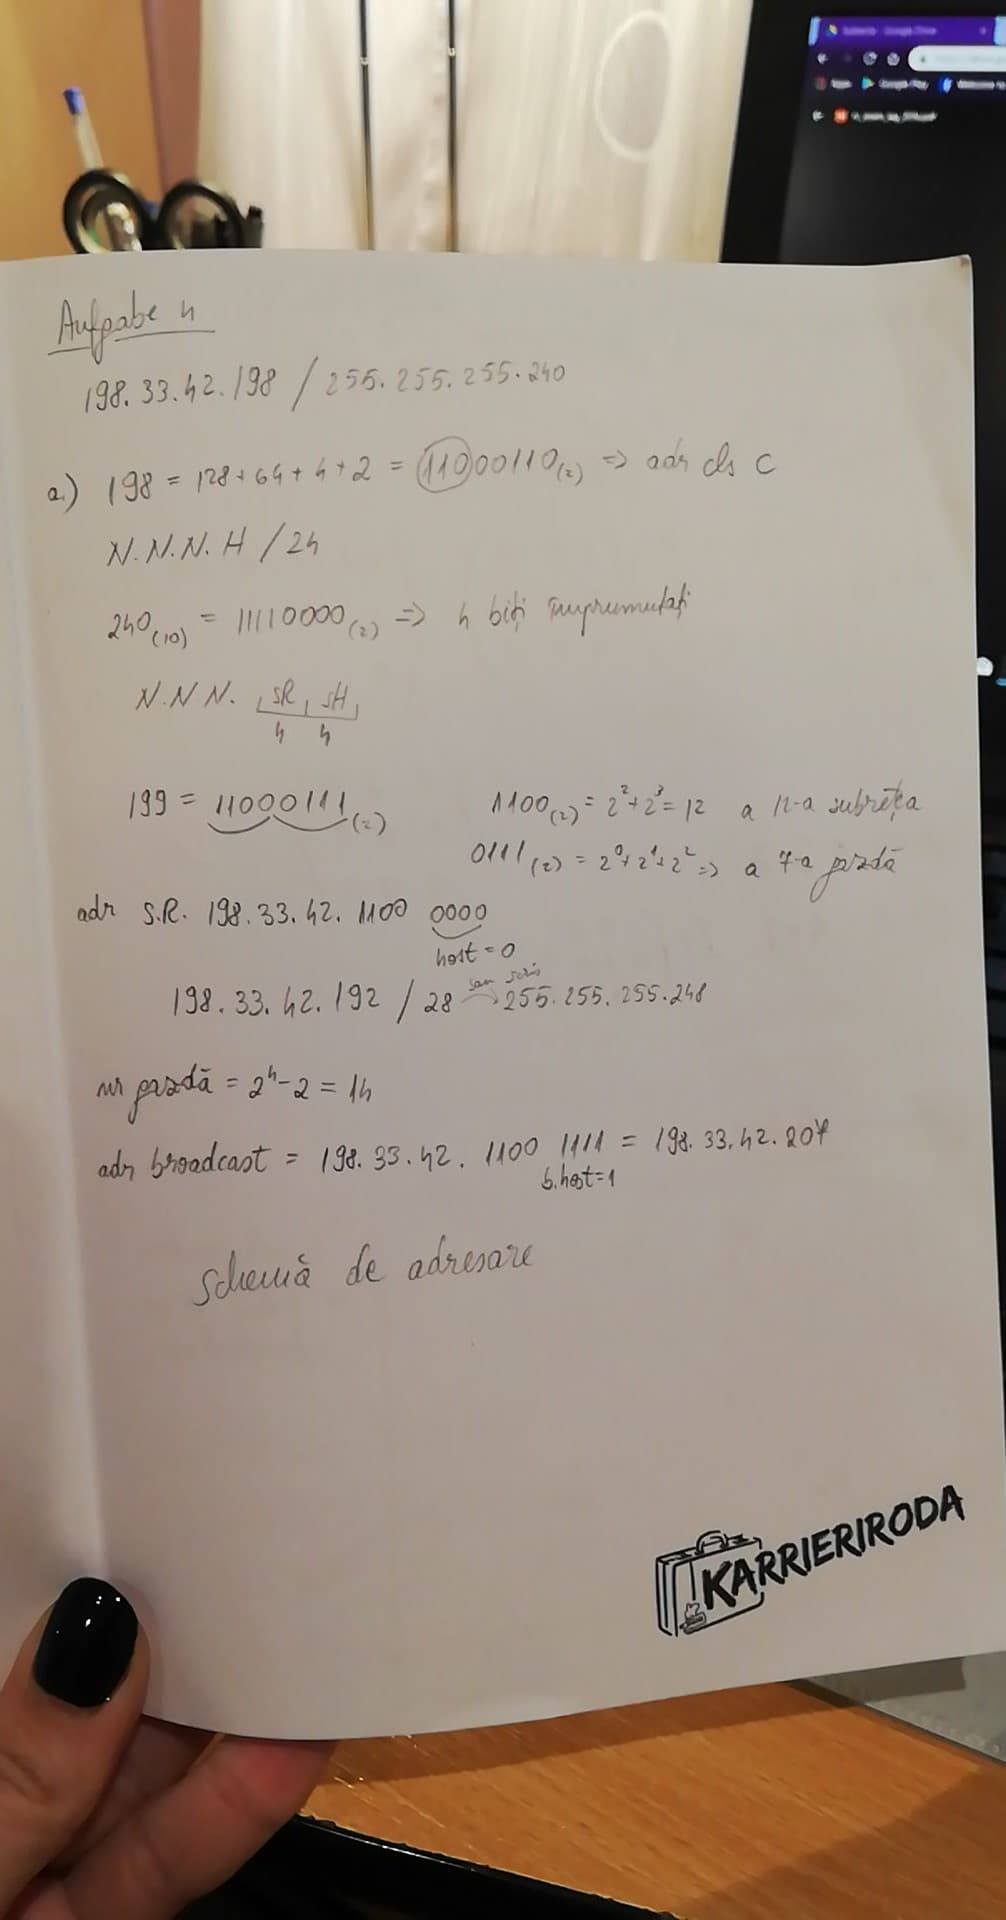 Google Drive
Google Play
Welcome to
Aufgabe 4
198.33.42.198 / 255.255.255.240
a.) 198 = 128+64+4+2 = 11000110(2) => adr cls C
N.N.N.H /24
240(10) = 11110000(2) => 4 biți împrumutați
N.N.N. SR, SH,
4 4
199 = 11000111(2) 1100(2) = 2²+2³= 12 a 12-a subrețea
0111(2) = 2⁰+2¹+2² => a 7-a gazdă
adr S.R. 198.33.42. 1100 0000
host = 0
sau scris
198.33.42.192 / 28 255.255.255.248
nr gazdă = 2⁴-2 = 14
adr broadcast = 198.33.42. 1100 1111 = 198.33.42.207
b.host=1
Schemă de adresare
KARRIERIRODA